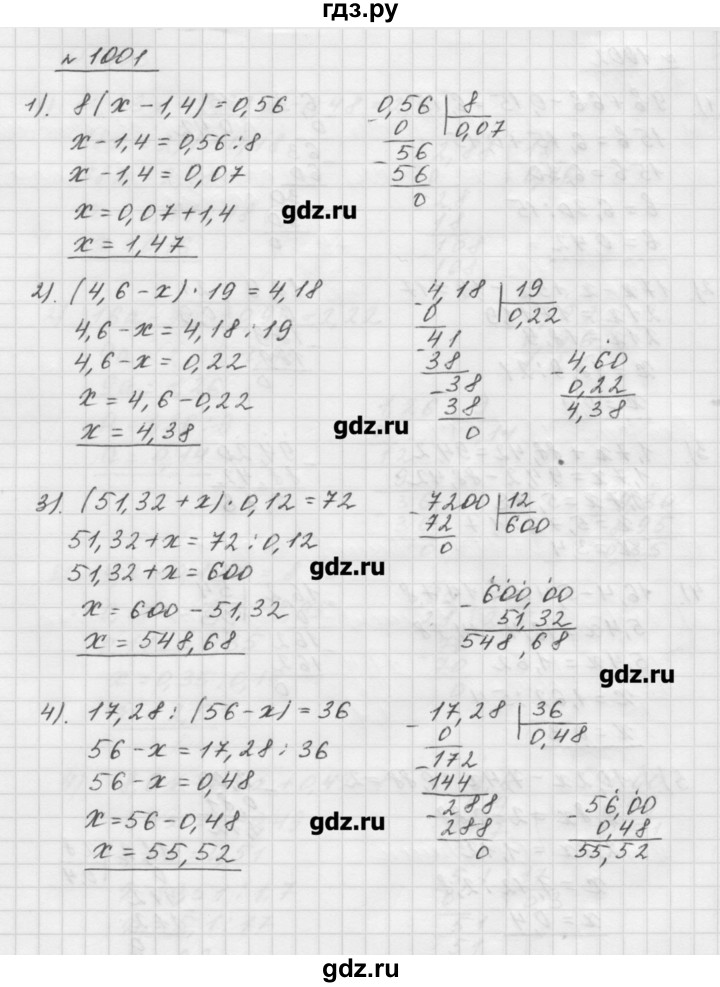 гдз.ру
№ 1001
1). 8(x − 1,4) = 0,56
x − 1,4 = 0,56 : 8
x − 1,4 = 0,07
x = 0,07 + 1,4
x = 1,47
0,56 | 8
0 | 0,07
56
56
0
gdz.ru
2). (4,6 − x) · 19 = 4,18
4,6 − x = 4,18 : 19
4,6 − x = 0,22
x = 4,6 − 0,22
x = 4,38
4,18 | 19
0 | 0,22
41
38
38
38
0
4,60
0,22
4,38
gdz.ru
3). (51,32 + x) · 0,12 = 72
51,32 + x = 72 : 0,12
51,32 + x = 600
x = 600 − 51,32
x = 548,68
7200 | 12
72 | 600
0
600,00
51,32
548,68
gdz.ru
gdz.ru
4). 17,28 : (56 − x) = 36
56 − x = 17,28 : 36
56 − x = 0,48
x = 56 − 0,48
x = 55,52
17,28 | 36
0 | 0,48
172
144
288
288
0
56,00
0,48
55,52
gdz.ru
gdz.ru